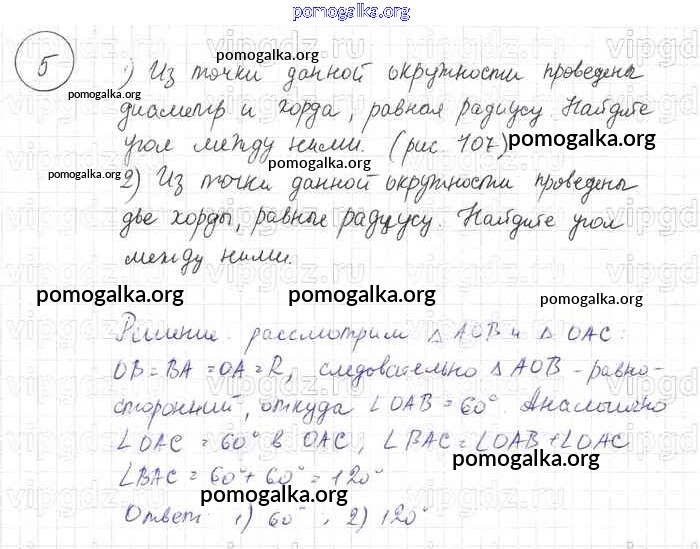 pomogalka.org
5
1) Из точки данной окружности проведены
pomogalka.org
pomogalka.org
диаметр и хорда, равная радиусу. Найдите
угол между ними. (рис. 107)
pomogalka.org
pomogalka.org
pomogalka.org
2) Из точки данной окружности проведены
две хорды, равные радиусу. Найдите угол
между ними.
pomogalka.org
pomogalka.org
pomogalka.org
Решение. рассмотрим △ AOB и △ OAC:
OB = BA = OA = R, следовательно △ AOB - равно-
сторонний, откуда ∠OAB = 60°. Аналогично
∠OAC = 60° в OAC, ∠BAC = ∠OAB + ∠OAC
pomogalka.org
∠BAC = 60° + 60° = 120°
pomogalka.org
Ответ: 1) 60°, 2) 120°